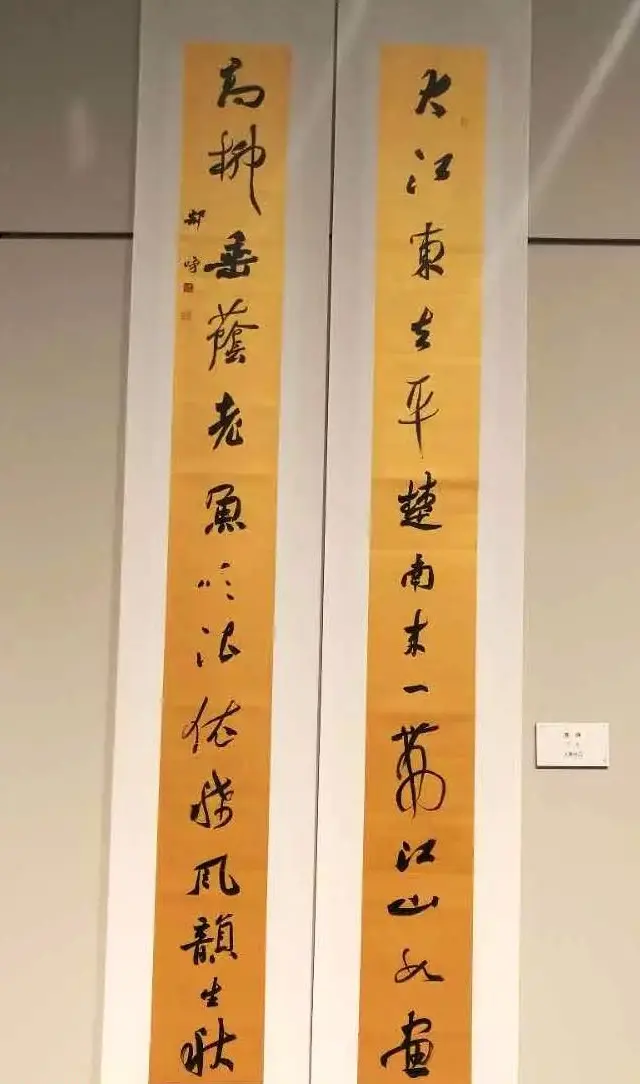 大江東去平楚南來一萬江山如畫
高柳垂蔭老魚吹浪依然風韻生秋